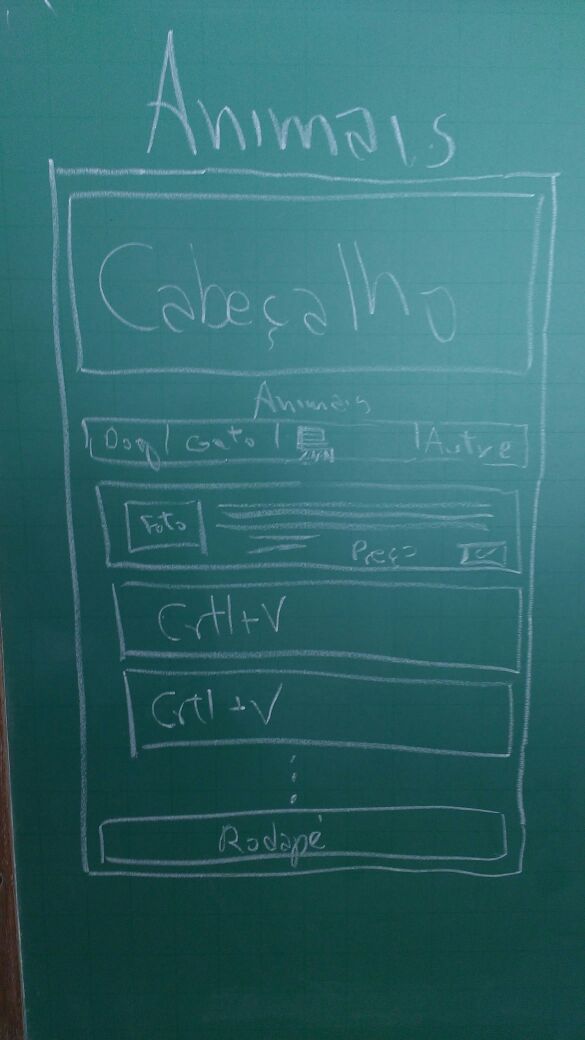 Animais
Cabeçalho
Animais
Dog Gato Autre
Foto
Preço
Crtl+V
Crtl+V
Rodapé